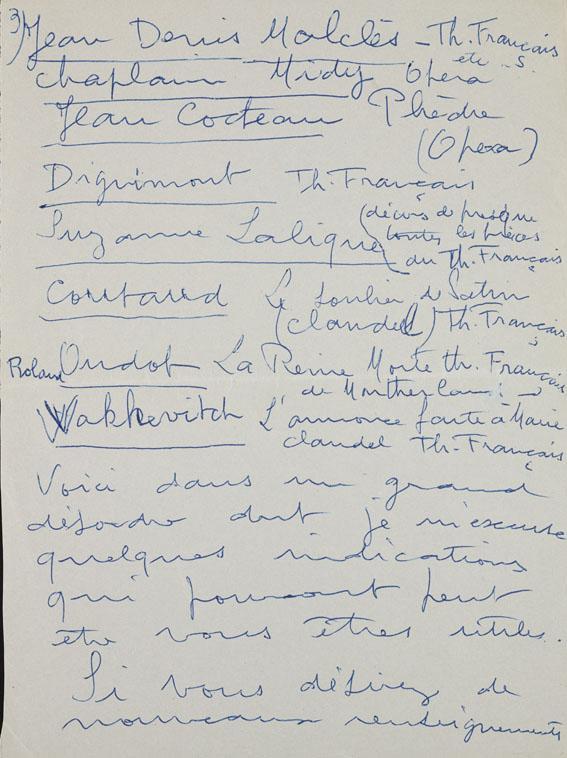 3) Jean Denis Malclès - Th. Français
etc
Chaplain Midy Opéra
Jean Cocteau Phèdre
(Opera)
Dignimont Th. Français
Suzanne Lalique (décors de presque
toutes les pièces
du Th. Français
Coutaud Le Soulier de Satin
(Claudel) Th. Français
Roland Oudot La Reine Morte th. Français
de Montherland
Wakhevitch L'annonce faite à Marie
Claudel Th. Français
Voici dans un grand
désordre dont je m'excuse
quelques indications
qui pourront peut
etre vous êtres utiles.
Si vous désirez de
nouveaux renseignements